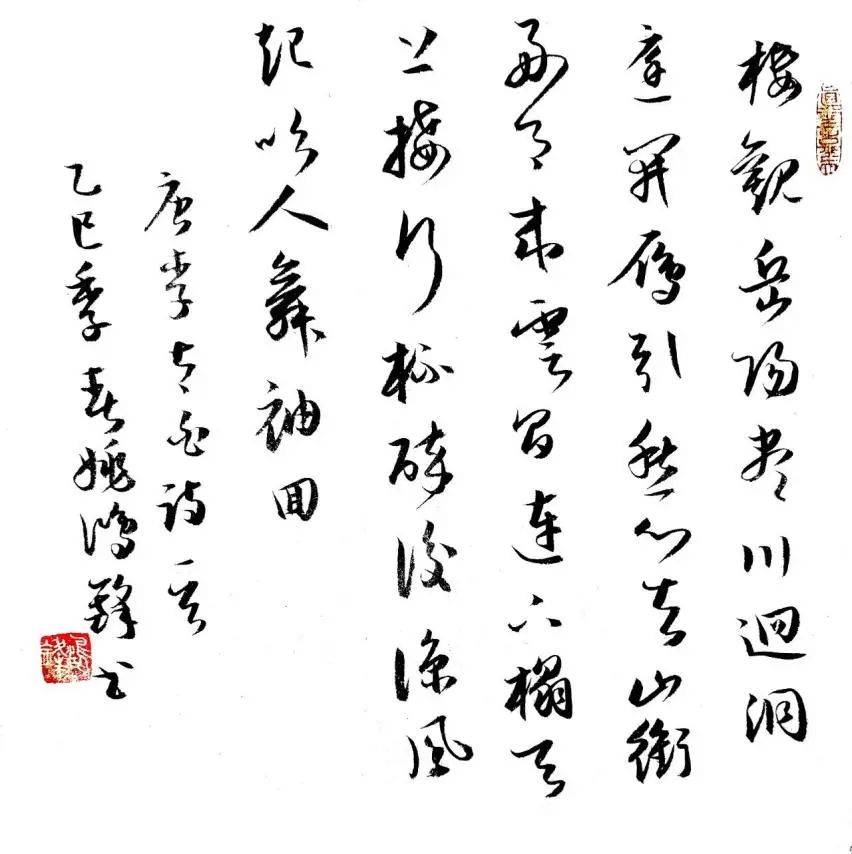 樓觀岳陽盡川迴洞
庭開雁引愁心去山銜
好月来雲間連下榻天
上接行杯醉後涼風
起吹人舞袖回
唐李太白詩一首
乙巳季春姚鴻鋒书